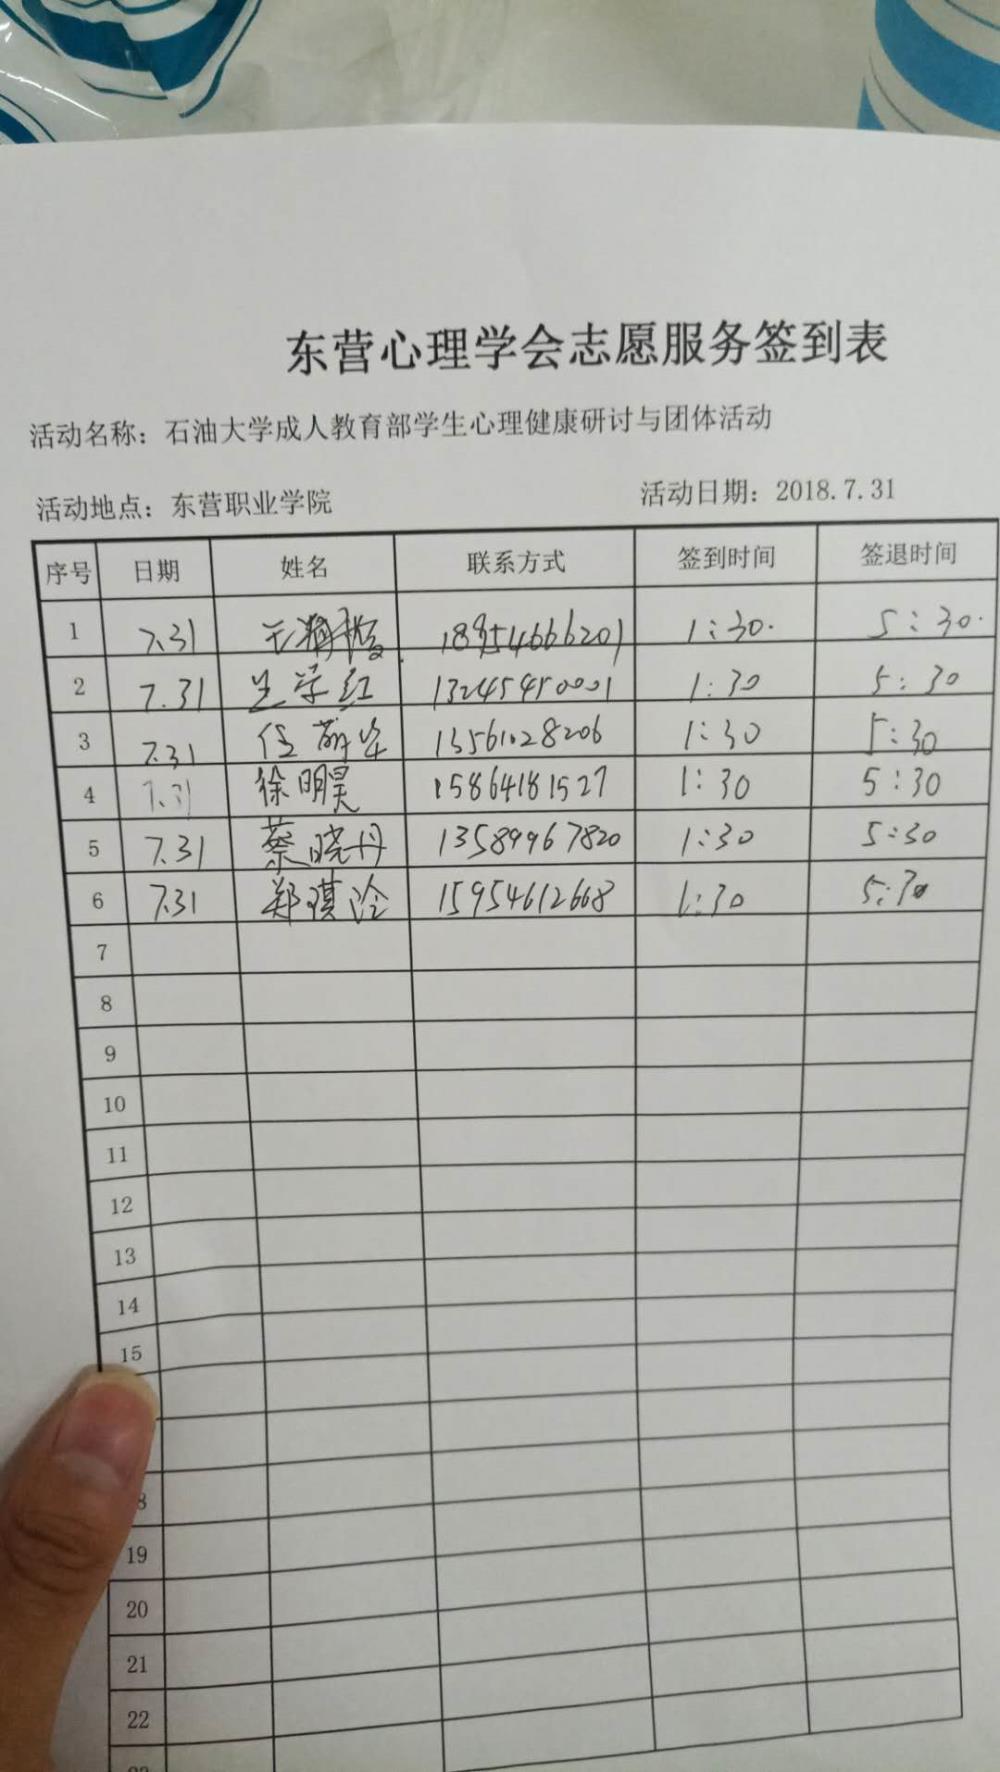 东营心理学会志愿服务签到表
活动名称：石油大学成人教育部学生心理健康研讨与团体活动
活动地点：东营职业学院 活动日期：2018.7.31
序号 日期 姓名 联系方式 签到时间 签退时间
1 7.31 18954666201 1:30. 5:30.
2 7.31 1:30 5:30
3 7.31 13561028206 1:30 5:30
4 7.31 徐明昊 15864181527 1:30 5:30
5 7.31 蔡晓丹 13589967820 1:30 5:30
6 7.31 郑琪 15954612668 1:30 5:30
7
8
9
10
11
12
13
14
15
19
20
21
22